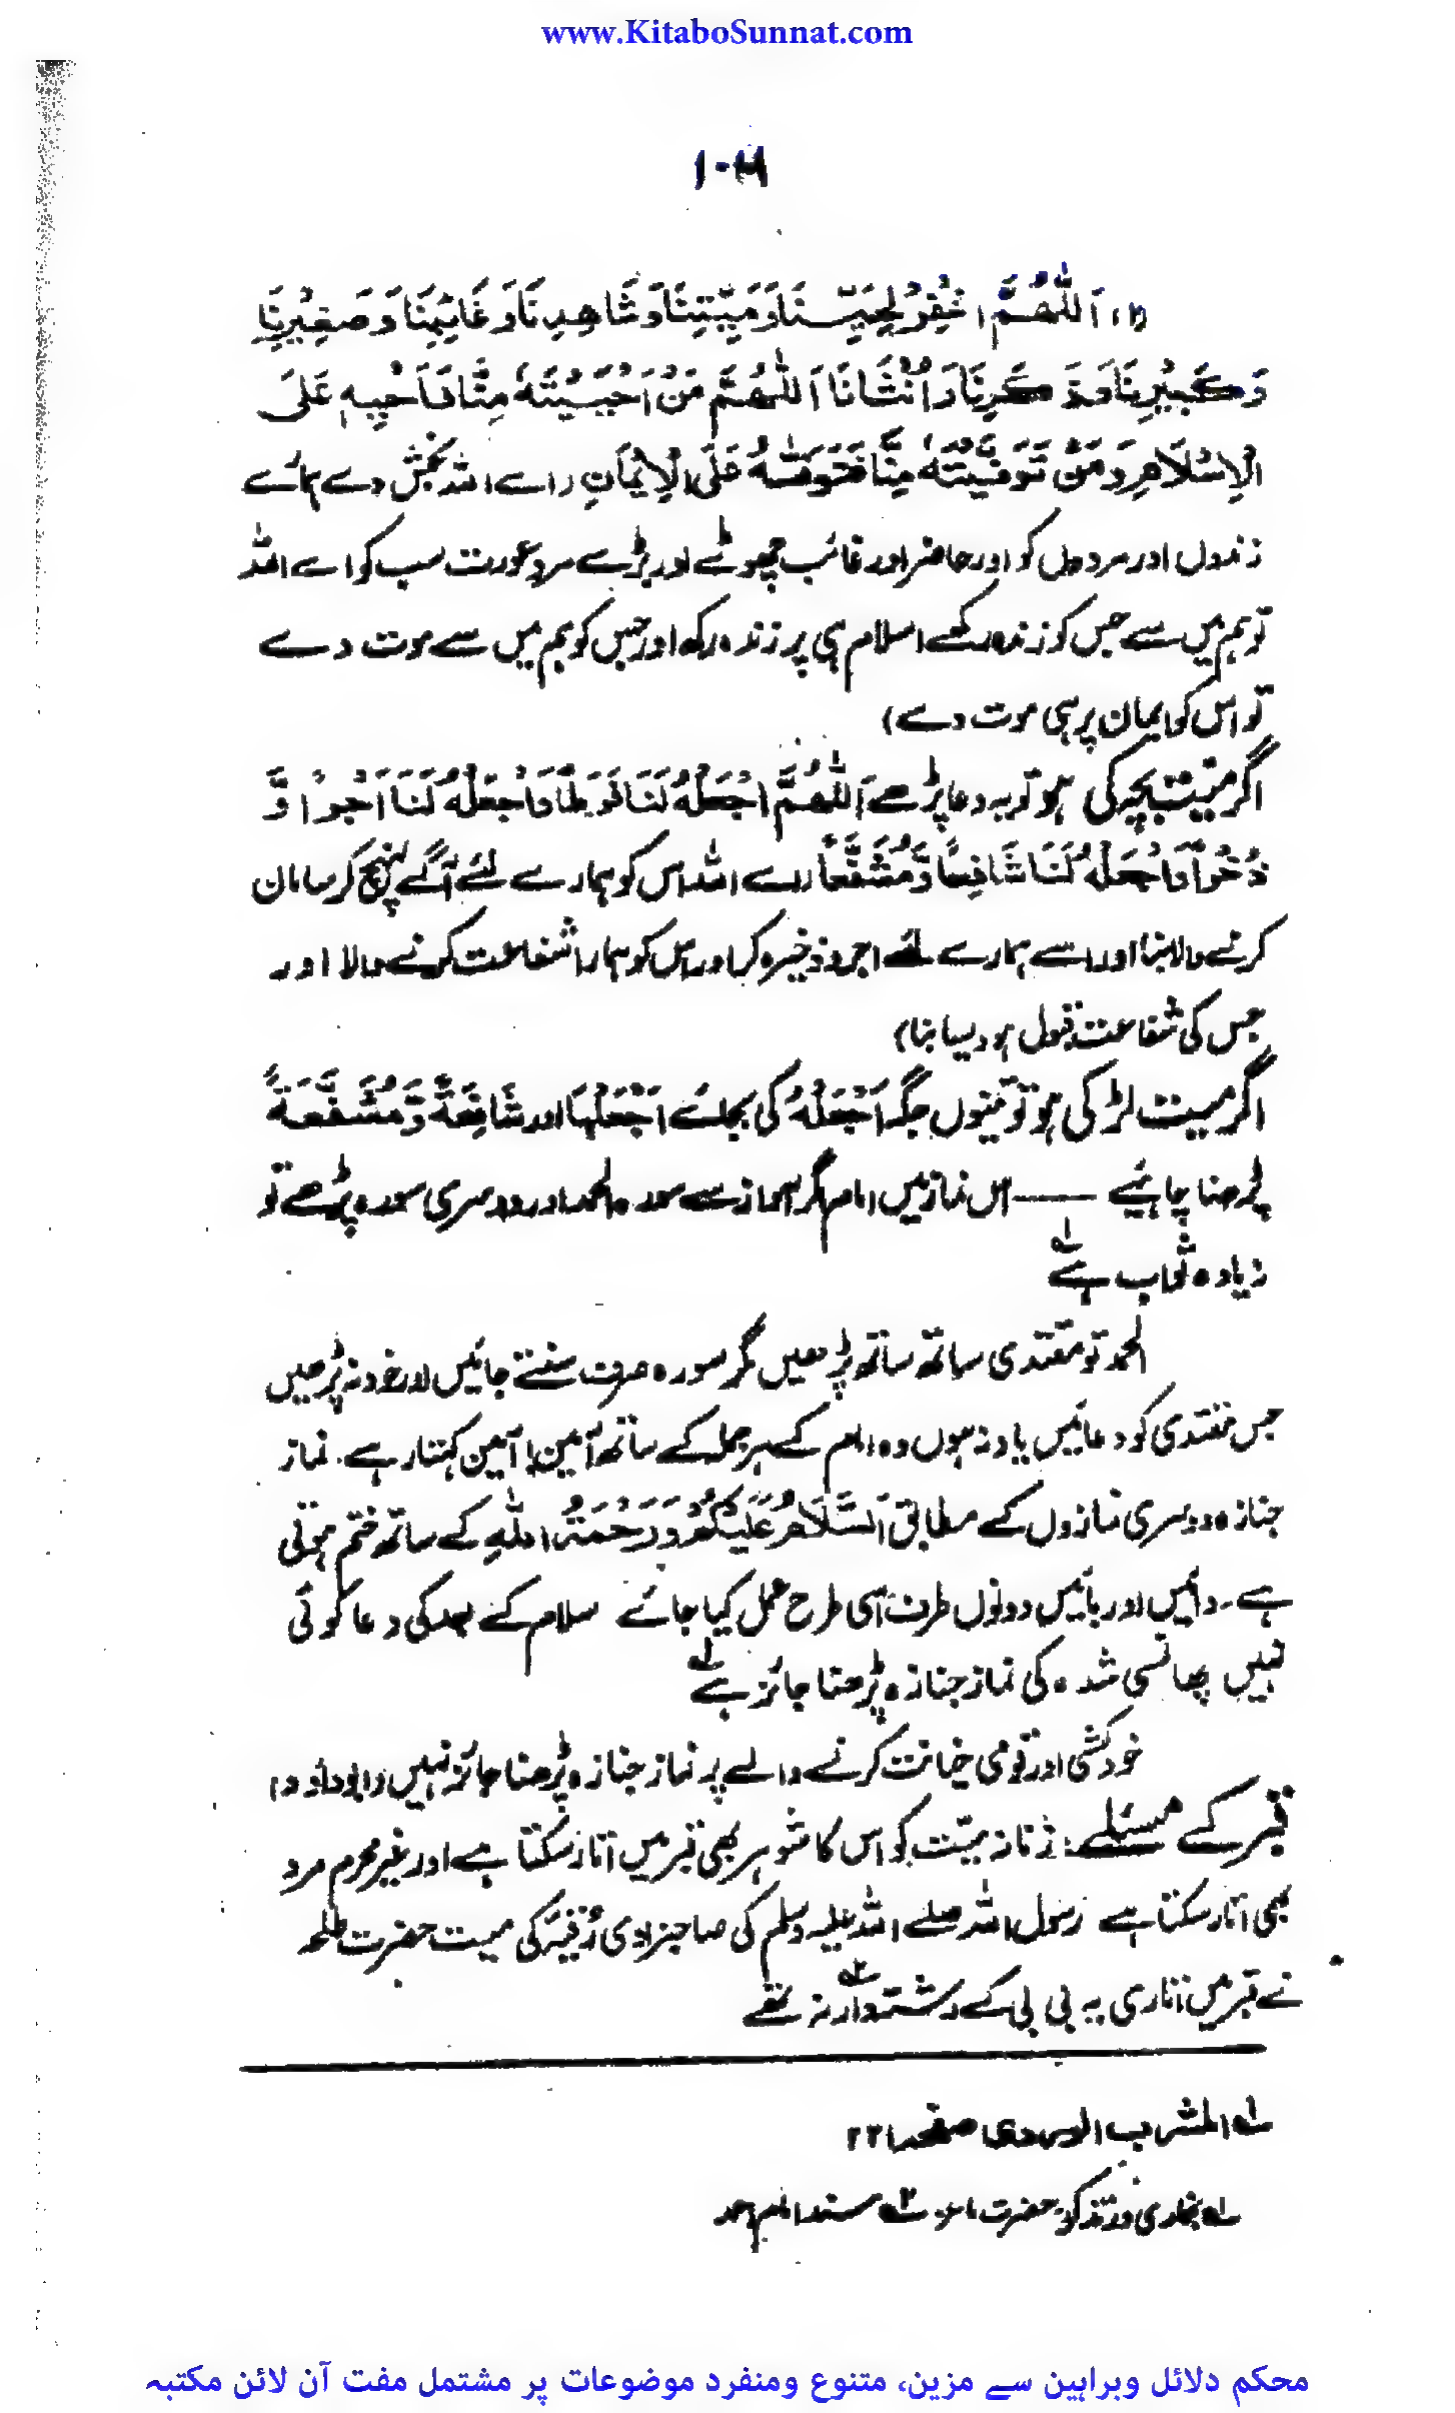 www.KitaboSunnat.com
۱۰۴
(۱) اَللّٰهُمَّ اغْفِرْ لِحَيِّنَا وَمَيِّتِنَا وَشَاهِدِنَا وَغَائِبِنَا وَصَغِيْرِنَا
وَكَبِيْرِنَا وَذَكَرِنَا وَاُنْثَانَا اَللّٰهُمَّ مَنْ اَحْيَيْتَهٗ مِنَّا فَاَحْيِهٖ عَلَى
الْاِسْلَامِ وَمَنْ تَوَفَّيْتَهٗ مِنَّا فَتَوَفَّهٗ عَلَى الْاِيْمَانِ (اے اللہ بخش دے ہمارے
زندوں اور مردوں کو اور حاضر اور غائب چھوٹے اور بڑے مرد عورت سب کو اے اللہ
تو ہم میں سے جس کو زندہ رکھے اسلام ہی پر زندہ رکھ اور جس کو ہم میں سے موت دے
تو اس کو ایمان پر ہی موت دے)
اگر میّت بچہ کی ہو تو یہ دعا پڑھے اَللّٰهُمَّ اجْعَلْهُ لَنَا فَرَطًا وَاجْعَلْهُ لَنَا اَجْرًا وَّ
ذُخْرًا وَاجْعَلْهُ لَنَا شَافِعًا وَّمُشَفَّعًا (اے اللہ اس کو ہمارے لئے آگے پہنچ کر سامان
کرنے والا بنا اور اسے ہمارے لئے اجر و ذخیرہ کر اور اس کو ہمارا شفاعت کرنے والا اور
جس کی شفاعت قبول ہو ویسا بنا)
اگر میت لڑکی ہو تو تینوں جگہ اَجْعَلْهُ کی بجائے اَجْعَلْهَا اور شَافِعَةً وَّمُشَفَّعَةً
پڑھنا چاہئیے —— اس نماز میں امام اگر آواز سے سورہ الحمد اور دوسری سورہ پڑھے تو
زیادہ ثواب ہے ۱؎
الحمد تو مقتدی ساتھ ساتھ پڑھیں مگر سورہ صرف سنتے جائیں اور خود نہ پڑھیں
جس مقتدی کو دعائیں یاد نہ ہوں وہ امام کے ہر جملہ کے ساتھ آمین آمین کہتا رہے۔ نماز
جنازہ دوسری نمازوں کے مطابق اَلسَّلَامُ عَلَيْكُمْ وَرَحْمَةُ اللهِ کے ساتھ ختم ہوتی
ہے۔ دائیں اور بائیں دونوں طرف اسی طرح عمل کیا جائے سلام کے بعد کی دعا کوئی
نہیں پھانسی شدہ کی نماز جنازہ پڑھنا جائز ہے ۱؎
خودکشی اور قومی خیانت کرنے والے پر نماز جنازہ پڑھنا جائز نہیں (ابوداؤد)
قبر کے مسئلے: زنانہ میّت کو اس کا شوہر بھی قبر میں اتار سکتا ہے اور غیر محرم مرد
بھی اتار سکتا ہے رسول اللہ صلے اللہ علیہ وسلم کی صاحبزادی رُقیّہ کی میت حضرت طلحہ
نے قبر میں اتاری یہ بی بی کے رشتہ دار نہ تھے ۲؎
۱؎ المشرب الوردی صفحہ ۲۲۱
۱؎ بخاری حضرت ماعز ۲؎ مسند امام احمد
محکم دلائل وبراہین سے مزین، متنوع ومنفرد موضوعات پر مشتمل مفت آن لائن مکتبہ